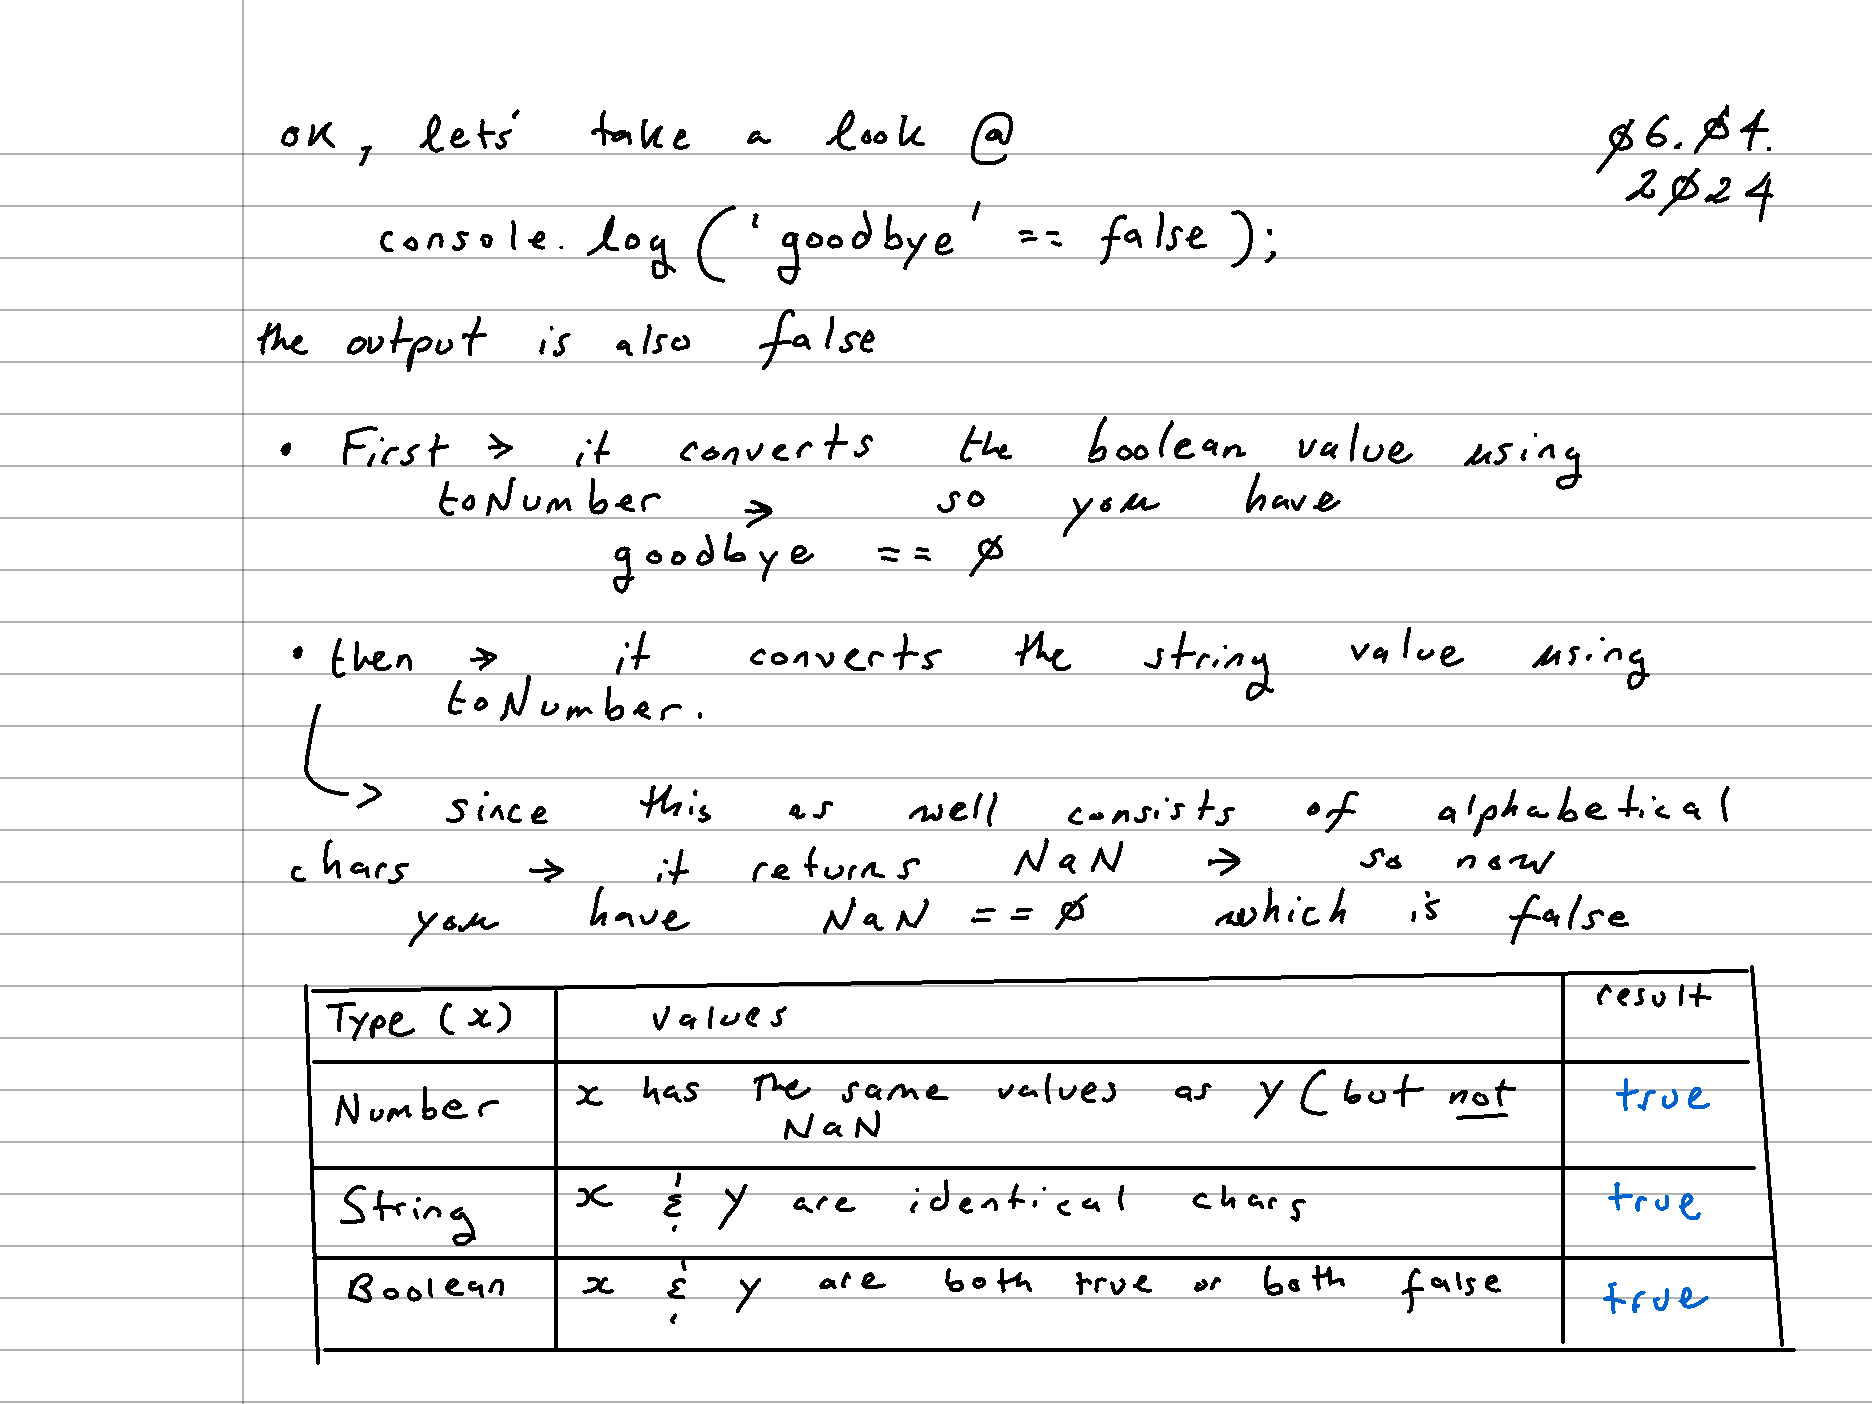 ok, lets' take a look @
ø6.ø4.
2ø24
console.log('goodbye' == false);
the output is also false
• First → it converts the boolean value using
toNumber → so you have
goodbye == ø
• then → it converts the string value using
toNumber.
↳ since this as well consists of alphabetical
chars → it returns NaN → so now
you have NaN == ø which is false
Type (x) values result
Number x has the same values as y (but not NaN true
String x & y are identical chars true
Boolean x & y are both true or both false true